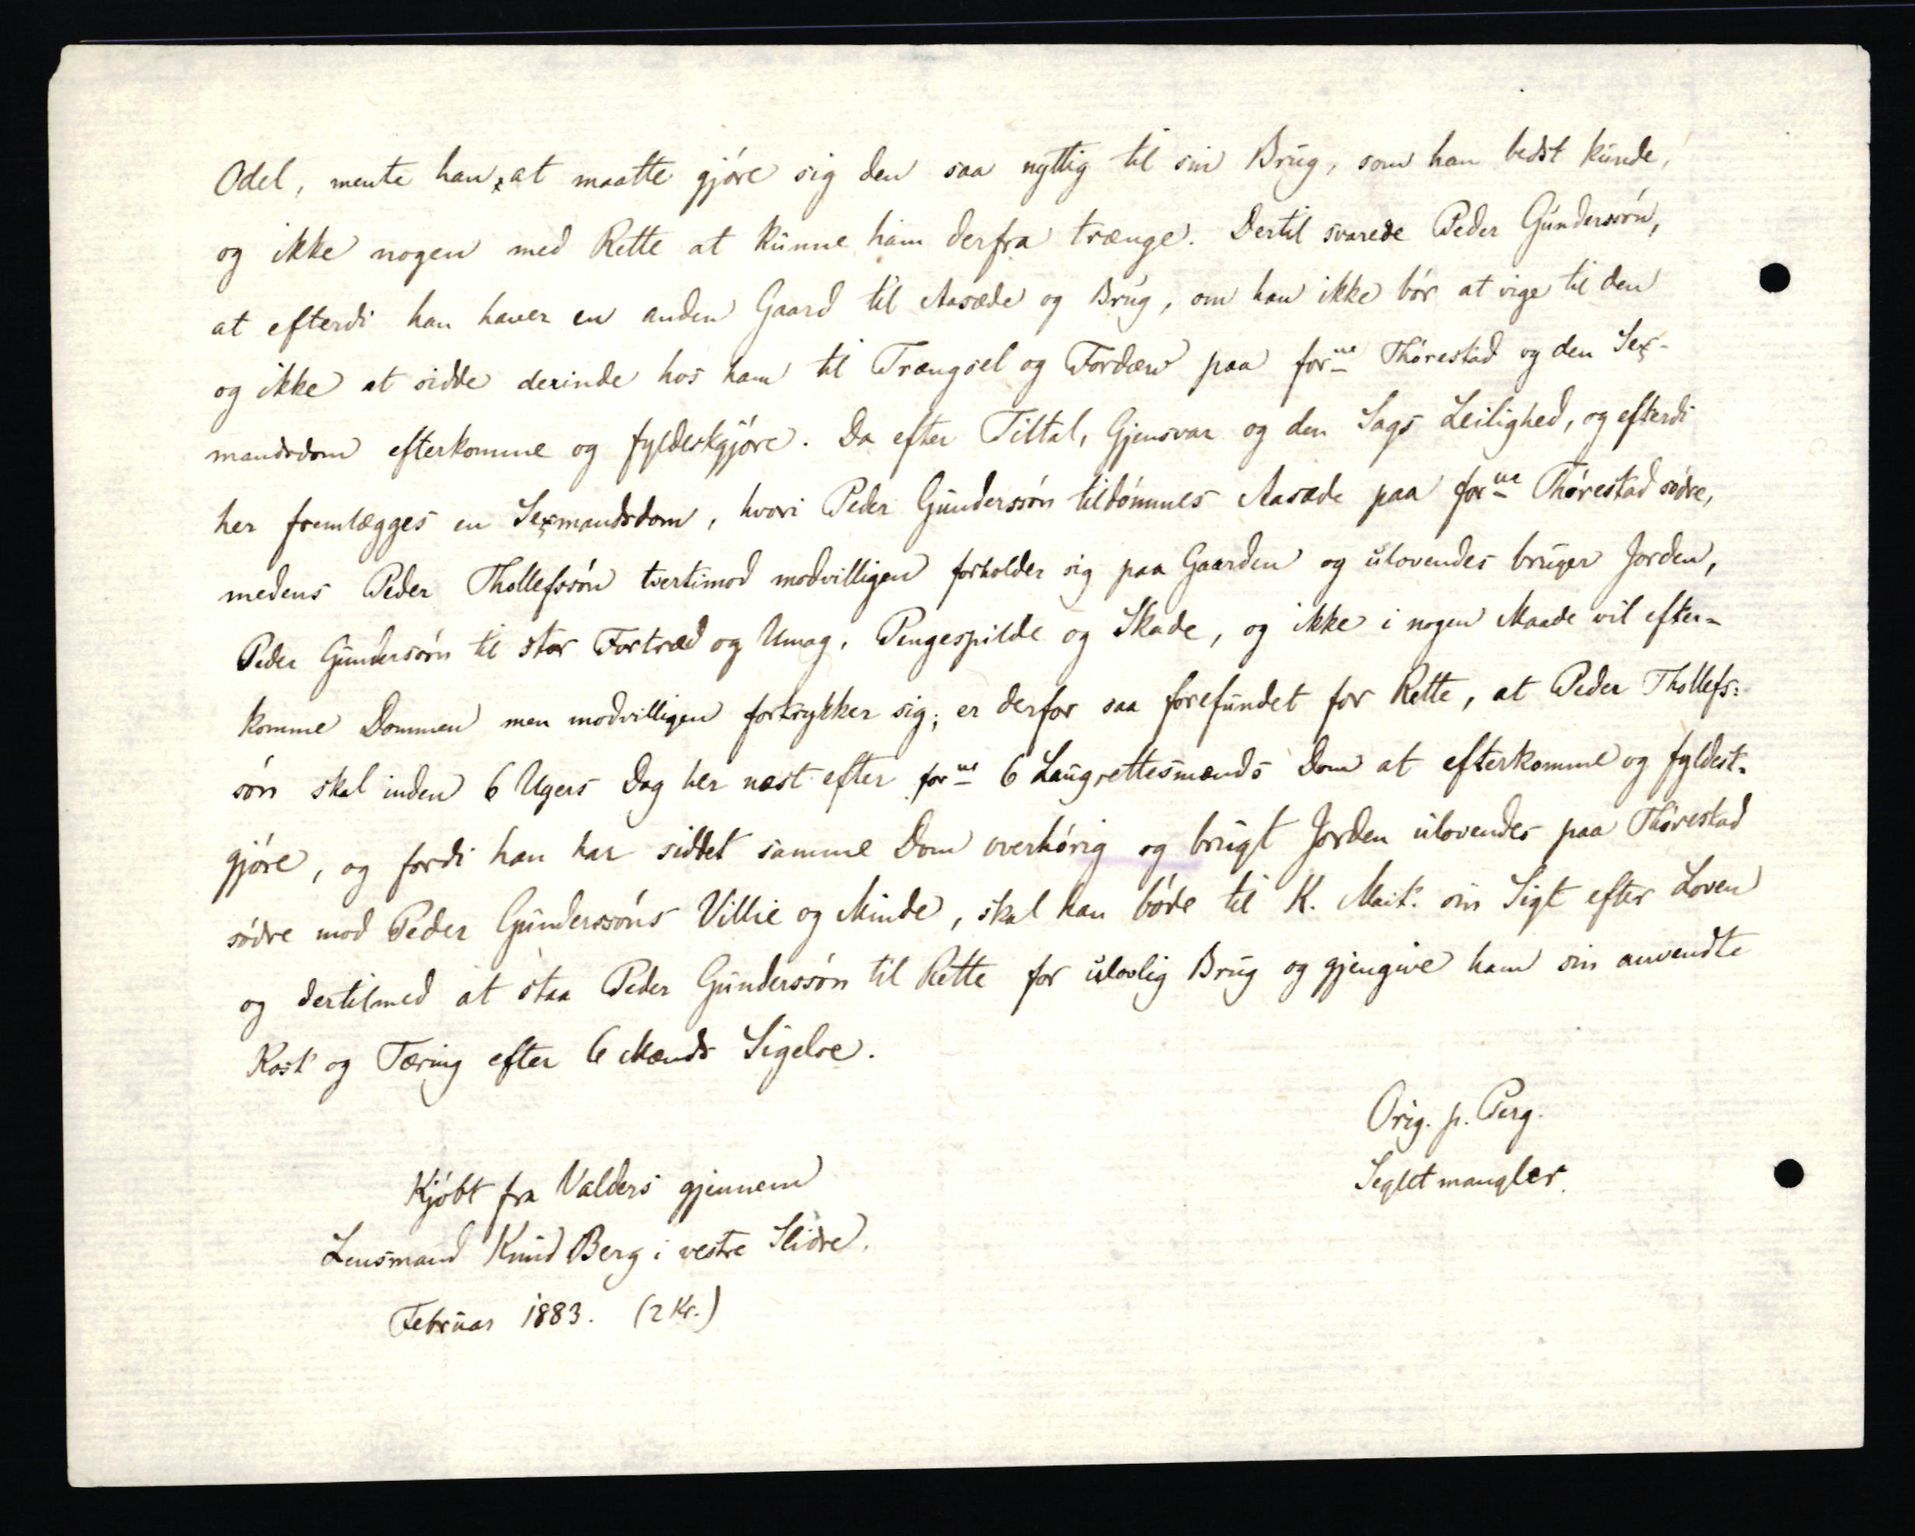 Odel, mente han, at maatte gjóre sig den saa nyttig til sin Brug, som han bedst kunde,
og ikke nogen med Rette at kunne ham derfra trænge. Dertil svarede Peder Gunderssón,
at efterdi han haver en anden Gaard til Aasæde og Brug, om han ikke bór at vige til den
og ikke at sidde derinde hos ham til Trængsel og Fordærv paa forne Thórestad og den Sex-
mandsdom efterkomme og fyldestgjóre. Da efter Tiltal, Gjensvar og den Sags Leilighed, og efterdi
her fremlægges en Sexmandsdom, hvori Peder Gunderssón tildómmes Aasæde paa forne Thórestad södre,
medens Peder Thollefssón tvertimod modvilligen forholder sig paa Gaarden og ulovendes bruger Jorden,
Peder Gunderssón til stor Fortræd og Umag, Pengespilde og Skade, og ikke i nogen Maade vil efter-
komme Dommen men modvilligen fortrykker sig; er derfor saa forefundet for Rette, at Peder Thollefs-
són skal inden 6 Ugers Dag her næst efter forne 6 Laugrettesmænds Dom at efterkomme og fyldest-
gjóre, og fordi han har siddet samme Dom overhórig og brugt Jorden ulovendes paa Thórestad
södre mod Peder Gunderssóns Villie og Minde, skal han bóde til K. Mait. sin Sigt efter Loven
og dertilmed at staa Peder Gunderssón til Rette for ulovlig Brug og gjengive ham sin anvendte
Kost og Tæring efter 6 Mænds Sigelse.
Orig. p. Perg.
Seglet mangler.
Kjóbt fra Valders gjennem
Lensmand Knud Berg i vestre Slidre.
Februar 1883. (2 Kr.)